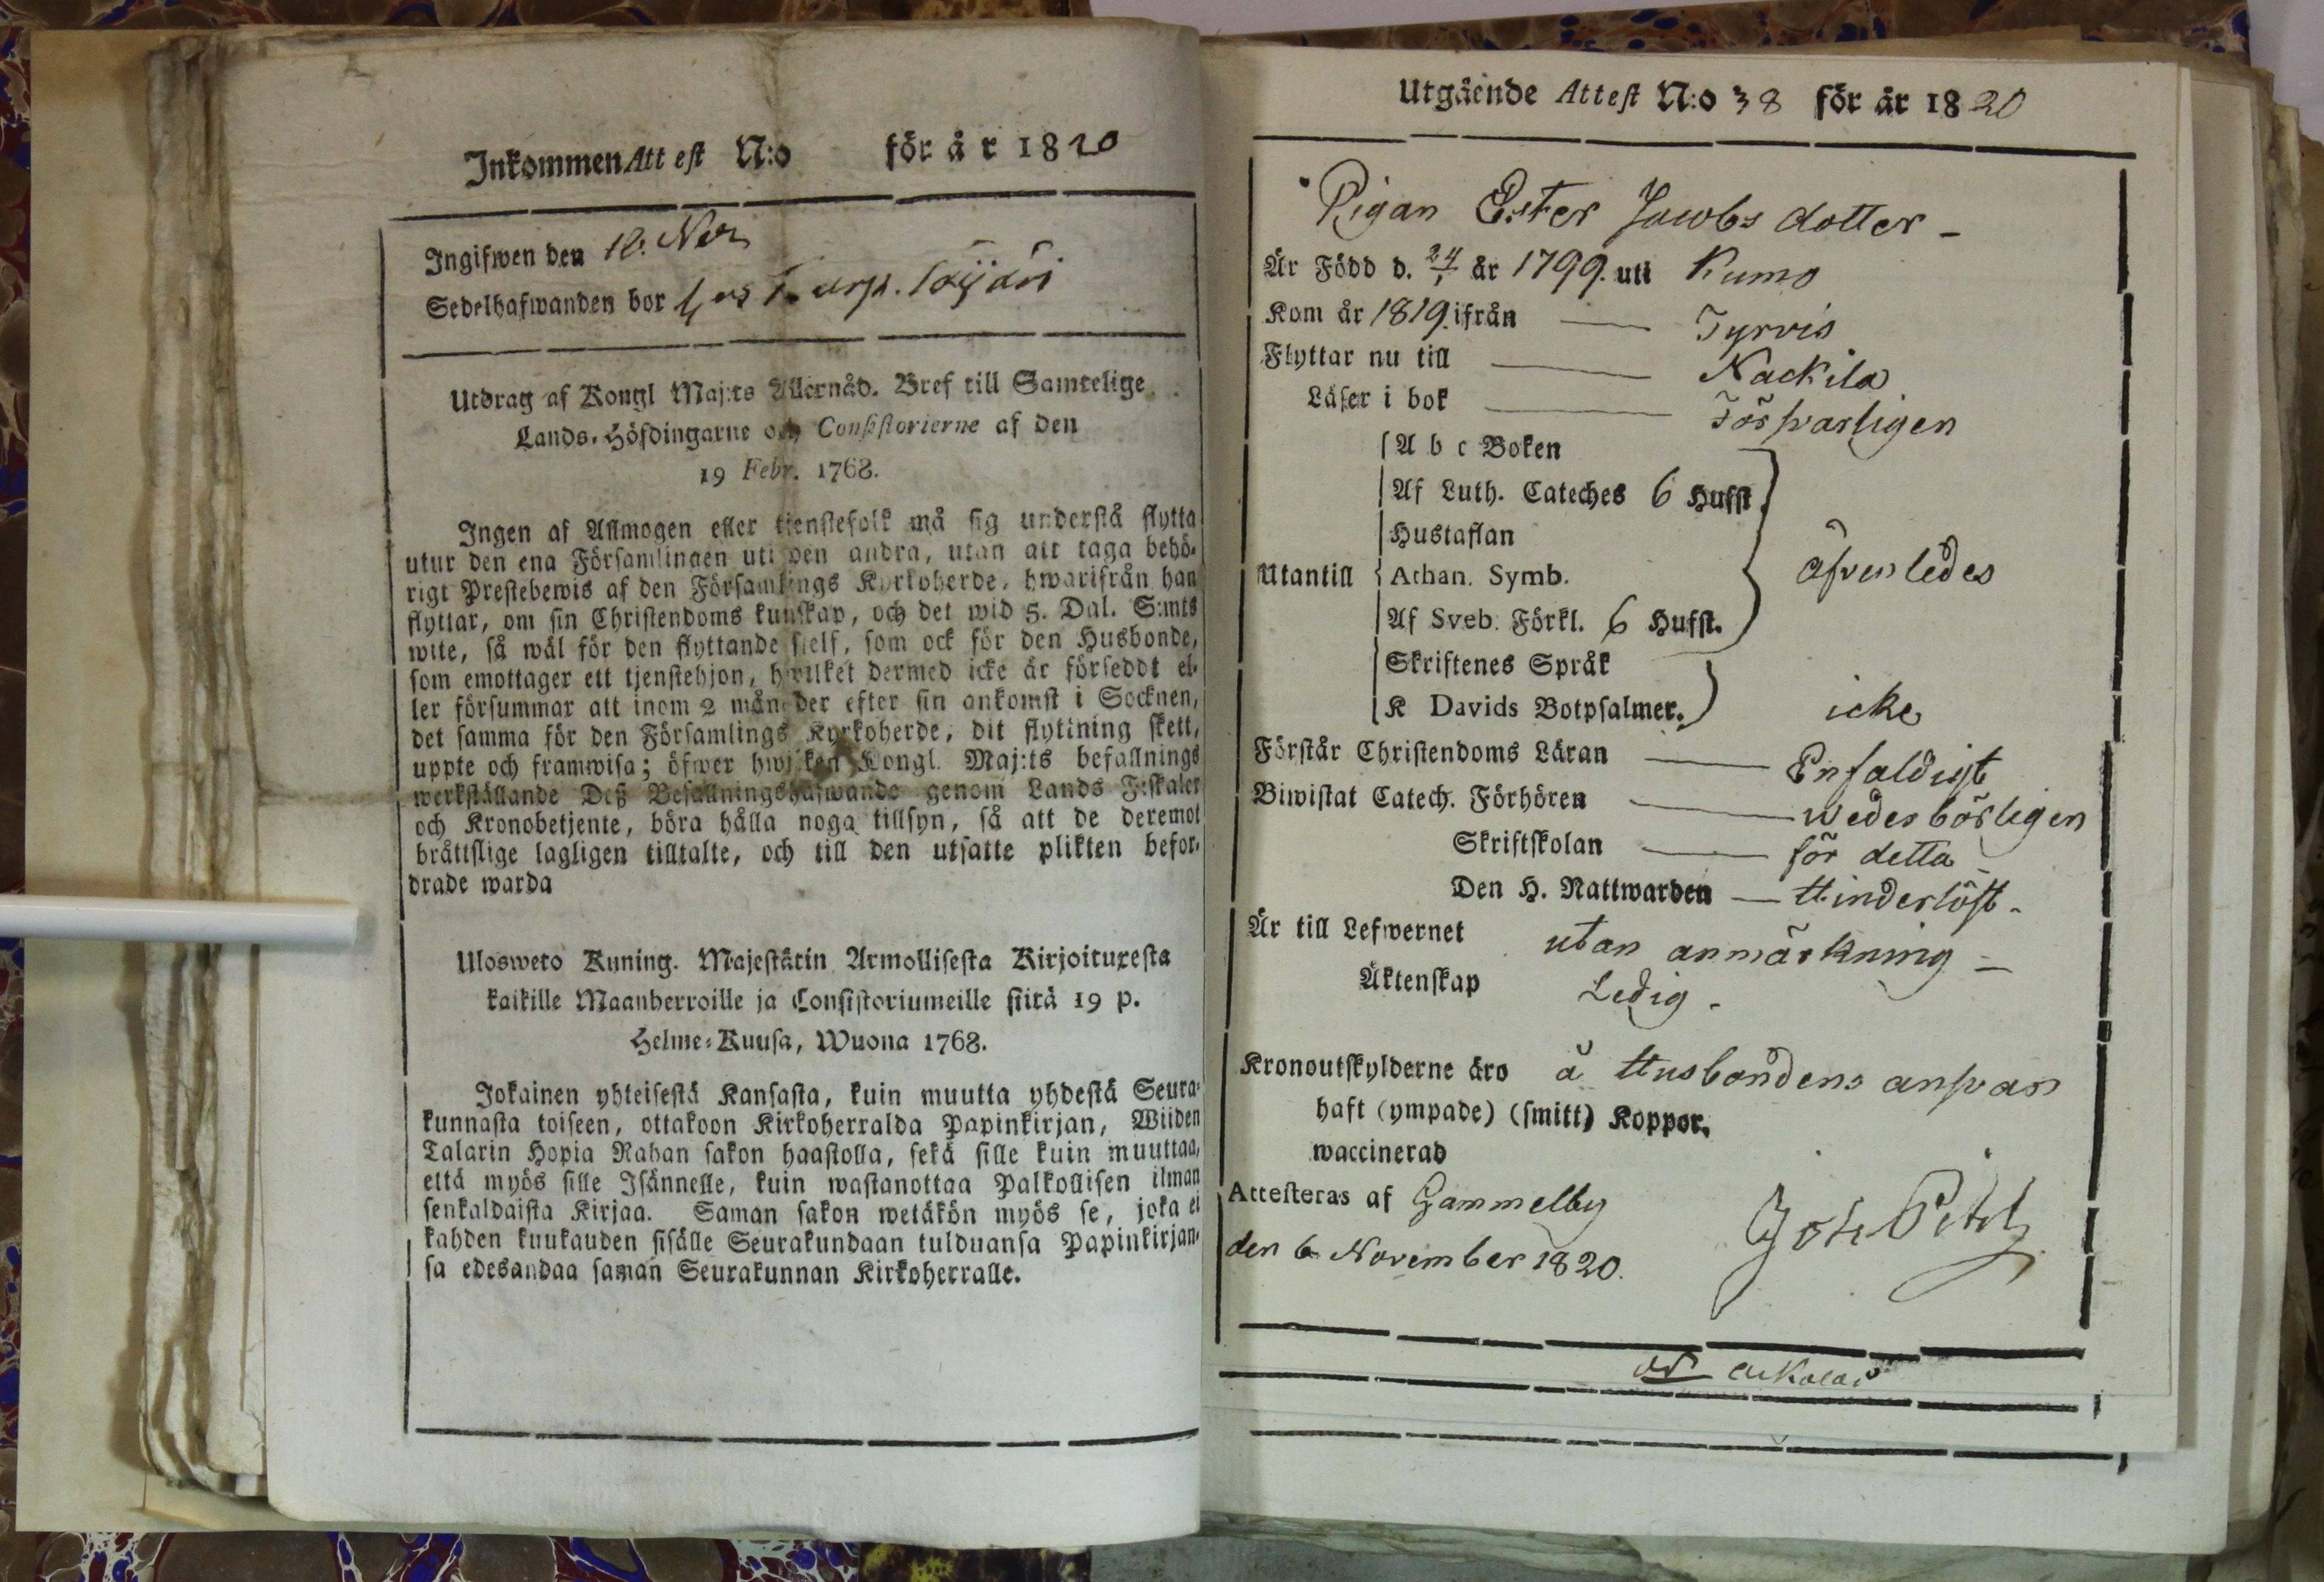 Inkommen Attest N:o för år 1820
Ingifwen den 12. Nov
Sedelhafwanden bor
Utdrag af Kongl Maj:ts Allernåd. Bref till Samtelige
Lands-Höfdingarne och Consistorierne af den
19 Febr. 1768.
Ingen af Allmogen eller tjenstefolk må sig understå flytta
utur den ena Församlingen uti den andra, utan att taga behö-
rigt Prestebewis af den Församlings Kyrkoherde, hwarifrån han
flyttar, om sin Christendoms kunskap, och det wid 5. Dal. S:mts
wite, så wäl för den flyttande sielf, som ock för den Husbonde,
som emottager ett tjenstehjon, hwilket dermed icke är försedt el-
ler försummar att inom 2 månader efter sin ankomst i Socknen,
det samma för den Församlings Kyrkoherde, dit flyttning skett,
uppte och framwisa; öfwer hwilken Kongl. Maj:ts befallnings
werkställande Deß Befallningshafwande genom Lands Fiskaler
och Kronobetjente, böra hålla noga tillsyn, så att de deremot
bråttslige lagligen tilltalte, och till den utsatte plikten befor-
drade warda
Ulosweto Kuning. Majestätin Armollisesta Kirjoituxesta
kaikille Maanherroille ja Consistoriumeille siitä 19 p.
Helme-Kuusa, Wuona 1768.
Jokainen yhteisestä Kansasta, kuin muutta yhdestä Seura-
kunnasta toiseen, ottakoon Kirkoherralda Papinkirjan, Wiiden
Talarin Hopia Rahan sakon haastolla, sekä sille kuin muuttaa,
että myös sille Isännelle, kuin wastanottaa Palkollisen ilman
senkaldaista Kirjaa. Saman sakon wetäkön myös se, joka ei
kahden kuukauden sisälle Seurakundaan tulduansa Papinkirjan-
sa edesandaa saman Seurakunnan Kirkoherralle.
Utgående Attest N:o 38 för år 1820
Pigan Ester Jacobs dotter
Är Född d. 24/1 år 1799. uti Kumo
Kom år 1819. ifrån Tyrvis
Flyttar nu till Nackila
Läser i bok Försvarligen
A b c Boken
Af Luth. Cateches 6 Hufst.
Hustaflan
Utantill Athan. Symb. äfvenledes
Af Sveb. Förkl. 6 Hufst.
Skriftenes Språk
K Davids Botpsalmer. icke
Förstår Christendoms Läran Enfaldigt
Biwistat Catech. Förhören wederbörligen
Skriftskolan för detta
Den H. Nattwarden Hinderlöst
Är till Lefwernet utan anmärkning
Äktenskap Ledig
Kronoutskylderne äro å Husbondens ansvar
haft (ympade) (smitt) Koppor.
waccinerad
Attesteras af Gammelby
den 6 November 1820.